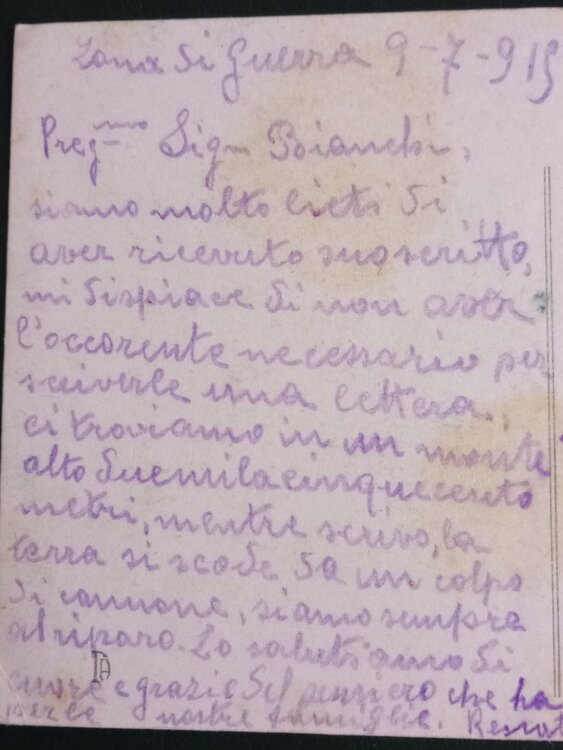 Zona di Guerra 9-7-915
Preg.mo Sig. Bianchi,
siamo molto lieti di
aver ricevuto suo scritto,
mi dispiace di non aver
l'occorente necessario per
scriverle una lettera.,
ci troviamo in un monte
alto duemilacinquecento
metri, mentre scrivo, la
terra si scode da un colpo
di cannone, siamo sempre
al riparo. Lo salutiamo di
cuore e grazie del pensiero che ha
per le nostre famiglie. Renat